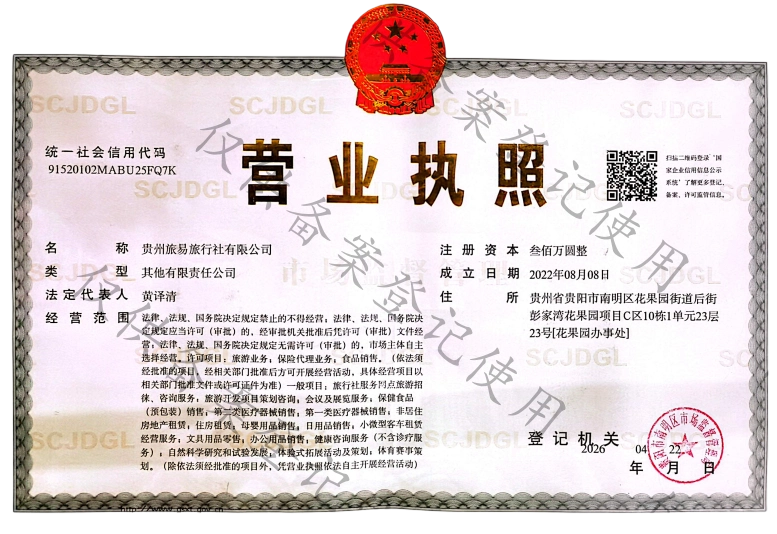 统一社会信用代码
91520102MABU25FQ7K
营业执照
扫描二维码登录‘国
家企业信用信息公示
系统’了解更多登记、
备案、许可监管信息。
名 称 贵州旅易旅行社有限公司
类 型 其他有限责任公司
法定代表人 黄译清
经营范围 法律、法规、国务院决定规定禁止的不得经营；法律、法规、国务院决
定规定应当许可（审批）的，经审批机关批准后凭许可（审批）文件经
营；法律、法规、国务院决定规定无需许可（审批）的，市场主体自主
选择经营。许可项目：旅游业务；保险代理业务；食品销售。（依法须
经批准的项目，经相关部门批准后方可开展经营活动，具体经营项目以
相关部门批准文件或许可证件为准）一般项目：旅行社服务网点旅游招
徕、咨询服务；旅游开发项目策划咨询；会议及展览服务；保健食品
（预包装）销售；第二类医疗器械销售；第一类医疗器械销售；非居住
房地产租赁；住房租赁；母婴用品销售；日用品销售；小微型客车租赁
经营服务；文具用品零售；办公用品销售；健康咨询服务（不含诊疗服
务）；自然科学研究和试验发展；体验式拓展活动及策划；体育赛事策
划。（除依法须经批准的项目外，凭营业执照依法自主开展经营活动）
注册资本 叁佰万圆整
成立日期 2022年08月08日
住 所 贵州省贵阳市南明区花果园街道后街
彭家湾花果园项目C区10栋1单元23层
23号[花果园办事处]
登记机关
2026 04 22
年 月 日
贵阳市南明区市场监督管理局
仅供备案登记使用
仅供备案登记使用
仅供备案登记
SCJDGL SCJDGL SCJDGL SCJDGL
SCJDGL
市场监督管理
SCJDGL SCJDGL
http://www.gsxt.gov.cn